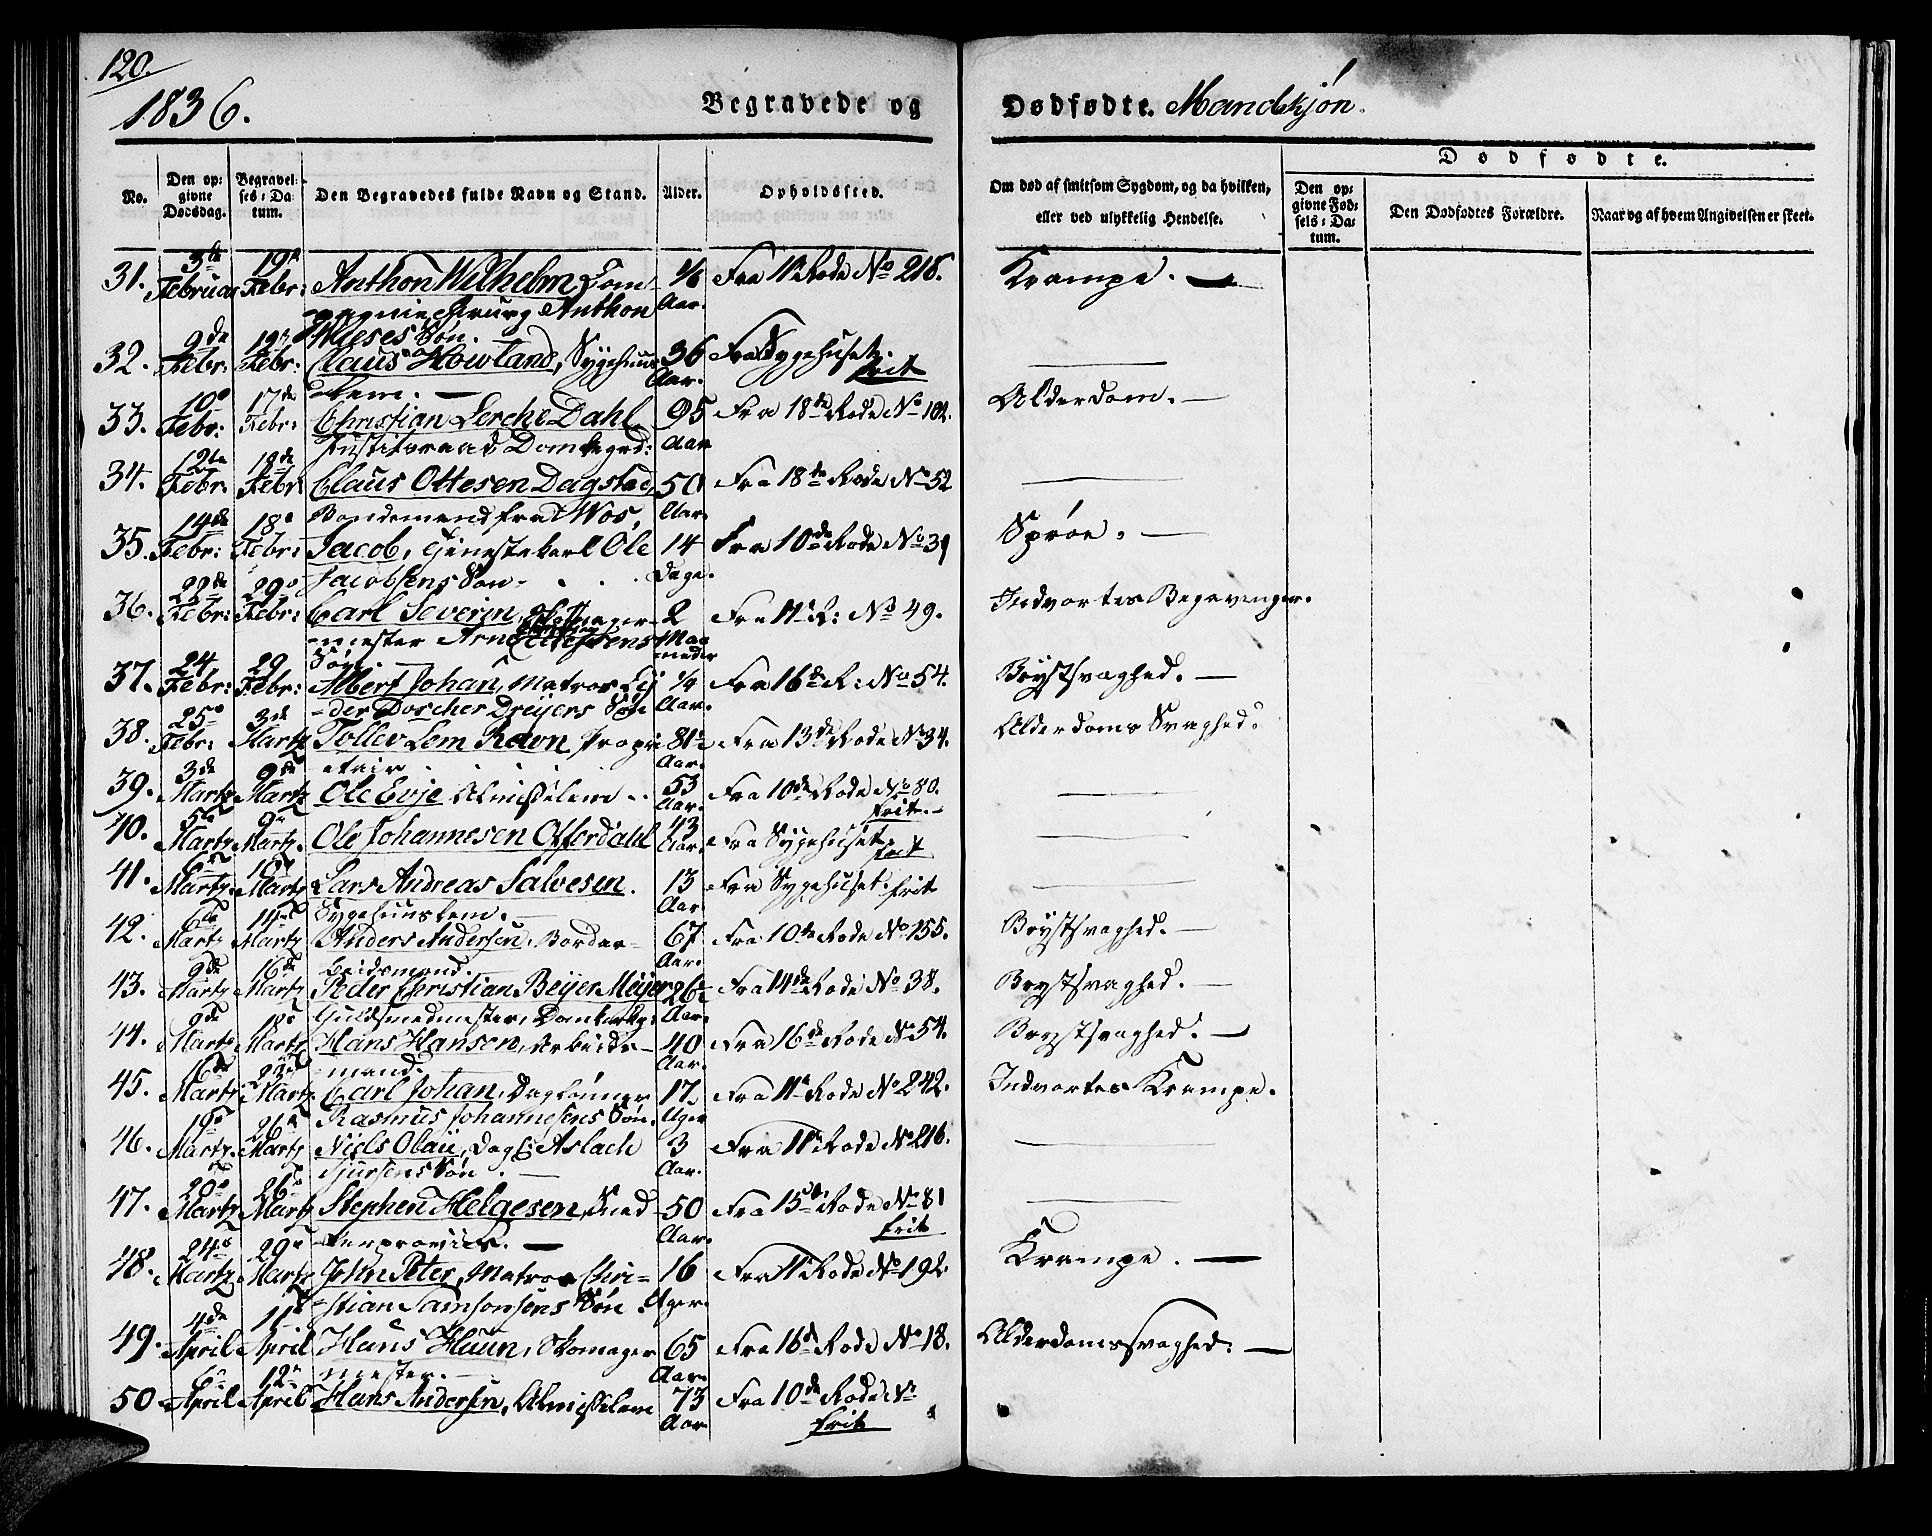 120.
1836.
Begravede og Dødfødte. Mandkjøn.
No. Den opgivne Dødsdag. Begravelses-Datum. Den Begravedes fulde Navn og Stand. Alder. Opholdssted. Om død af smitsom Sygdom, og da hvilken, eller ved ulykkelig Hendelse. Dødfødte. Den opgivne Fødsels-Datum. Den Dødfødtes Forældre. Naar og af hvem Angivelsen er skeet.
31. Februar Febr: Anthon Wilhelm Com- 1/6 Fra 11te Rode No 218. Krampe. —
pagnie Chirurg Anthon Aar.
Wieses Søn.
32. 9de Febr: 19 Febr: Claus Howland, Sygehuus- 36 Fra Sygehuset. —
lem. — Aar. frit
33. 10e Febr: 17de Febr: Christian Lerche Dahl, 95 Fra 18de Rode No 102. Alderdom. —
Justitsraad Domkegd: Aar
34. 12te Febr. 18de Febr Claus Ottesen Dagstad, 50 Fra 18de Rode No 52 —
Bondemand fra Wos, Aar.
35. 14de Febr: 18e Febr: Jacob, Tjenestekarl Ole 14 Fra 10de Rode No 39 Sprøe. —
Jacobsens Søn. Dage.
36. 22de Febr: 29e Febr: Carl Severin, 2 Fra 11e R: No 49. Indvortes Begevenger.
mester Arne Søn. Maaneder
37. 24 Febr: 29 Febr: Albert Johan, Matros Lej 1/4 Fra 16de R: No 54. Brystsvaghed. —
der Dorscher Dreyers Søn Aar.
38. 25e Febr: 3de Martz Tollev Lem Ravn Propri 81 1/2 Fra 13de Rode No 34. Alderdoms Svaghed.
etair Aar.
39. 3de Martz 9de Martz Ole Evje Almisselem 53 Aar. Fra 10de Rode No 80. frit. —
40. 5te Martz 9e Martz. Ole Johannesen Offerdahl 43 Aar. Fra Sygehuset. frit —
41. 6te Martz. 10e Martz Lars Andreas Salvesen. 13 Fra Sygehuset. frit —
Sygehuuslem. — Aar.
42. 6te Martz 11te Martz Anders Andersen, Border- 67 Fra 10de Rode No 155. Brystsvaghed. —
beidsmand. Aar.
43. 9de Martz 16de Martz Peder Christian Beyer Meyer 26 1/2 Fra 14de Rode No 38. Brystsvaghed. —
Guldsmedmester, Domkirkg: Aar.
44. 9de Martz 18e Martz Hans Hansen, Arbeids- 40 Fra 16de Rode No 54. Brystsvaghed. —
mand. Aar.
45. 16de Martz 23de Martz Carl Johan, Daglønner 17. Fra 11e Rode No 242. Indvortes Krampe.
Rasmus Johannesens Søn. Uger
46. 19e Martz. 26e Martz Niels Olaii, Dagl: Aslach 3 Fra 11e Rode No 216. —
Sjursens Søn. — Aar.
47. 20e Martz 26e Martz Stephen Helgesen, Smed- 50 Fra 15de Rode No 81 —
Aar. frit
48. 24e Martz 29e Martz John Peter, Matros Chri- 16 Fra 11e Rode No 192. Krampe. —
stian Samsonsens Søn Uger.
49. 4de April 11e April Hans Haun, Skomager 65 Fra 16de Rode No 18. Alderdomssvaghed. —
mester. — Aar.
50. 6e April 12e April Hans Andersen, Almisselem 73 Aar Fra 10de Rode No frit